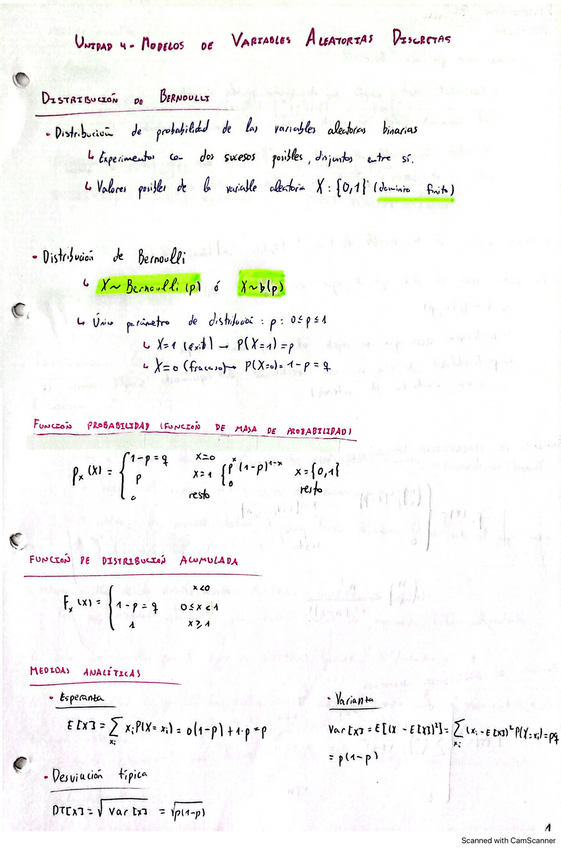 UNIDAD 4 - MODELOS DE VARIABLES ALEATORIAS DISCRETAS
DISTRIBUCIÓN DE BERNOULLI
- Distribución de probabilidad de las variables aleatorias binarias
↳ Experimentos con dos sucesos posibles, disjuntos entre sí.
↳ Valores posibles de la variable aleatoria X: {0,1} (dominio finito)
- Distribución de Bernoulli
↳ X~Bernoulli(p) ó X~b(p)
↳ Único parámetro de distribución: p: 0≤p≤1
↳ X=1 (éxito) → P(X=1)=p
↳ X=0 (fracaso) → P(X=0)=1-p=q
FUNCIÓN PROBABILIDAD (FUNCIÓN DE MASA DE PROBABILIDAD)
Pₓ(X) = { 1-p=q x=0
p x=1 { pˣ(1-p)¹⁻ˣ x={0,1}
0 resto 0 resto
FUNCIÓN DE DISTRIBUCIÓN ACUMULADA
Fₓ(X) = { x<0
1-p=q 0≤x<1
1 x≥1
MEDIDAS ANALÍTICAS
- Esperanza
E[X] = ∑ xᵢ P(X=xᵢ) = 0(1-p)+1·p=p
xᵢ
- Varianza
Var[X] = E[(X-E[X])²] = ∑ (xᵢ-E[X])² P(X=xᵢ)=pq
xᵢ
= p(1-p)
- Desviación típica
DT[X] = √Var[X] = √p(1-p)
1
Scanned with CamScanner